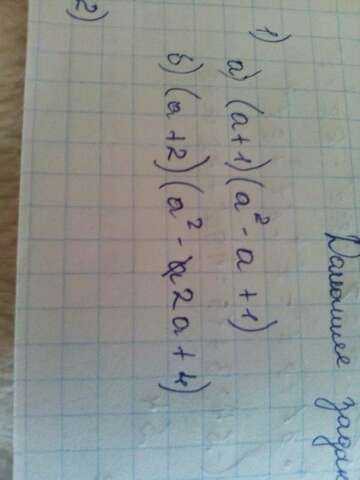 Домашнее задан
1)
а) (a+1)(a²-a+1)
б) (a+2)(a²-2a+4)
2)